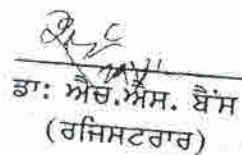 ਡਾ: ਐਚ.ਐਸ. ਬੈਂਸ
(ਰਜਿਸਟਰਾਰ)